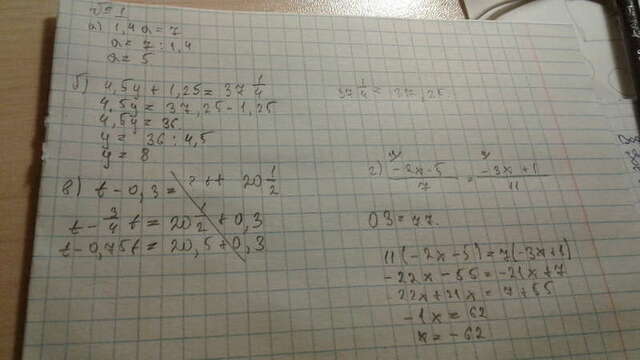 №1
а) 1,4a = 7
a = 7 : 1,4
a = 5
б) 4,5y + 1,25 = 37 1/4
37 1/4 = 37,25.
4,5y = 37,25 - 1,25
4,5y = 36
y = 36 : 4,5
y = 8
в) t - 0,3 = 20 1/2
t - 3/4 t = 20 1/2 + 0,3
t - 0,75t = 20,5 + 0,3
г) (-2x-5)/7 = (-3x+1)/11
ОЗ = 77.
11(-2x-5) = 7(-3x+1)
-22x - 55 = -21x + 7
-22x + 21x = 7 + 55
-1x = 62
x = -62